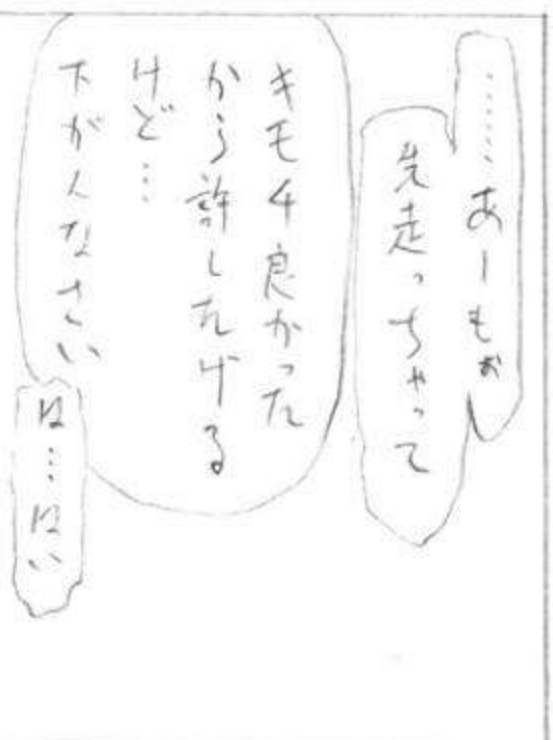 ……あーもぉ
先走っちゃって
キモチ良かった
から許したげる
けど…
下がんなさい
は…はい